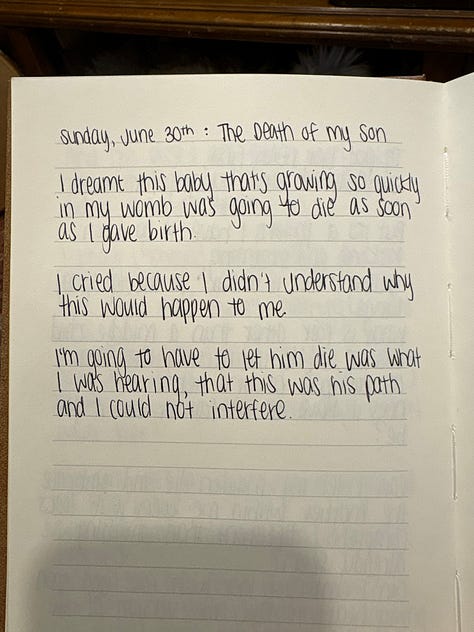 sunday, June 30th : The Death of my son
I dreamt this baby that's growing so quickly
in my womb was going to die as soon
as I gave birth.
I cried because I didn't understand why
this would happen to me.
I'm going to have to let him die was what
I was hearing, that this was his path
and I could not interfere.